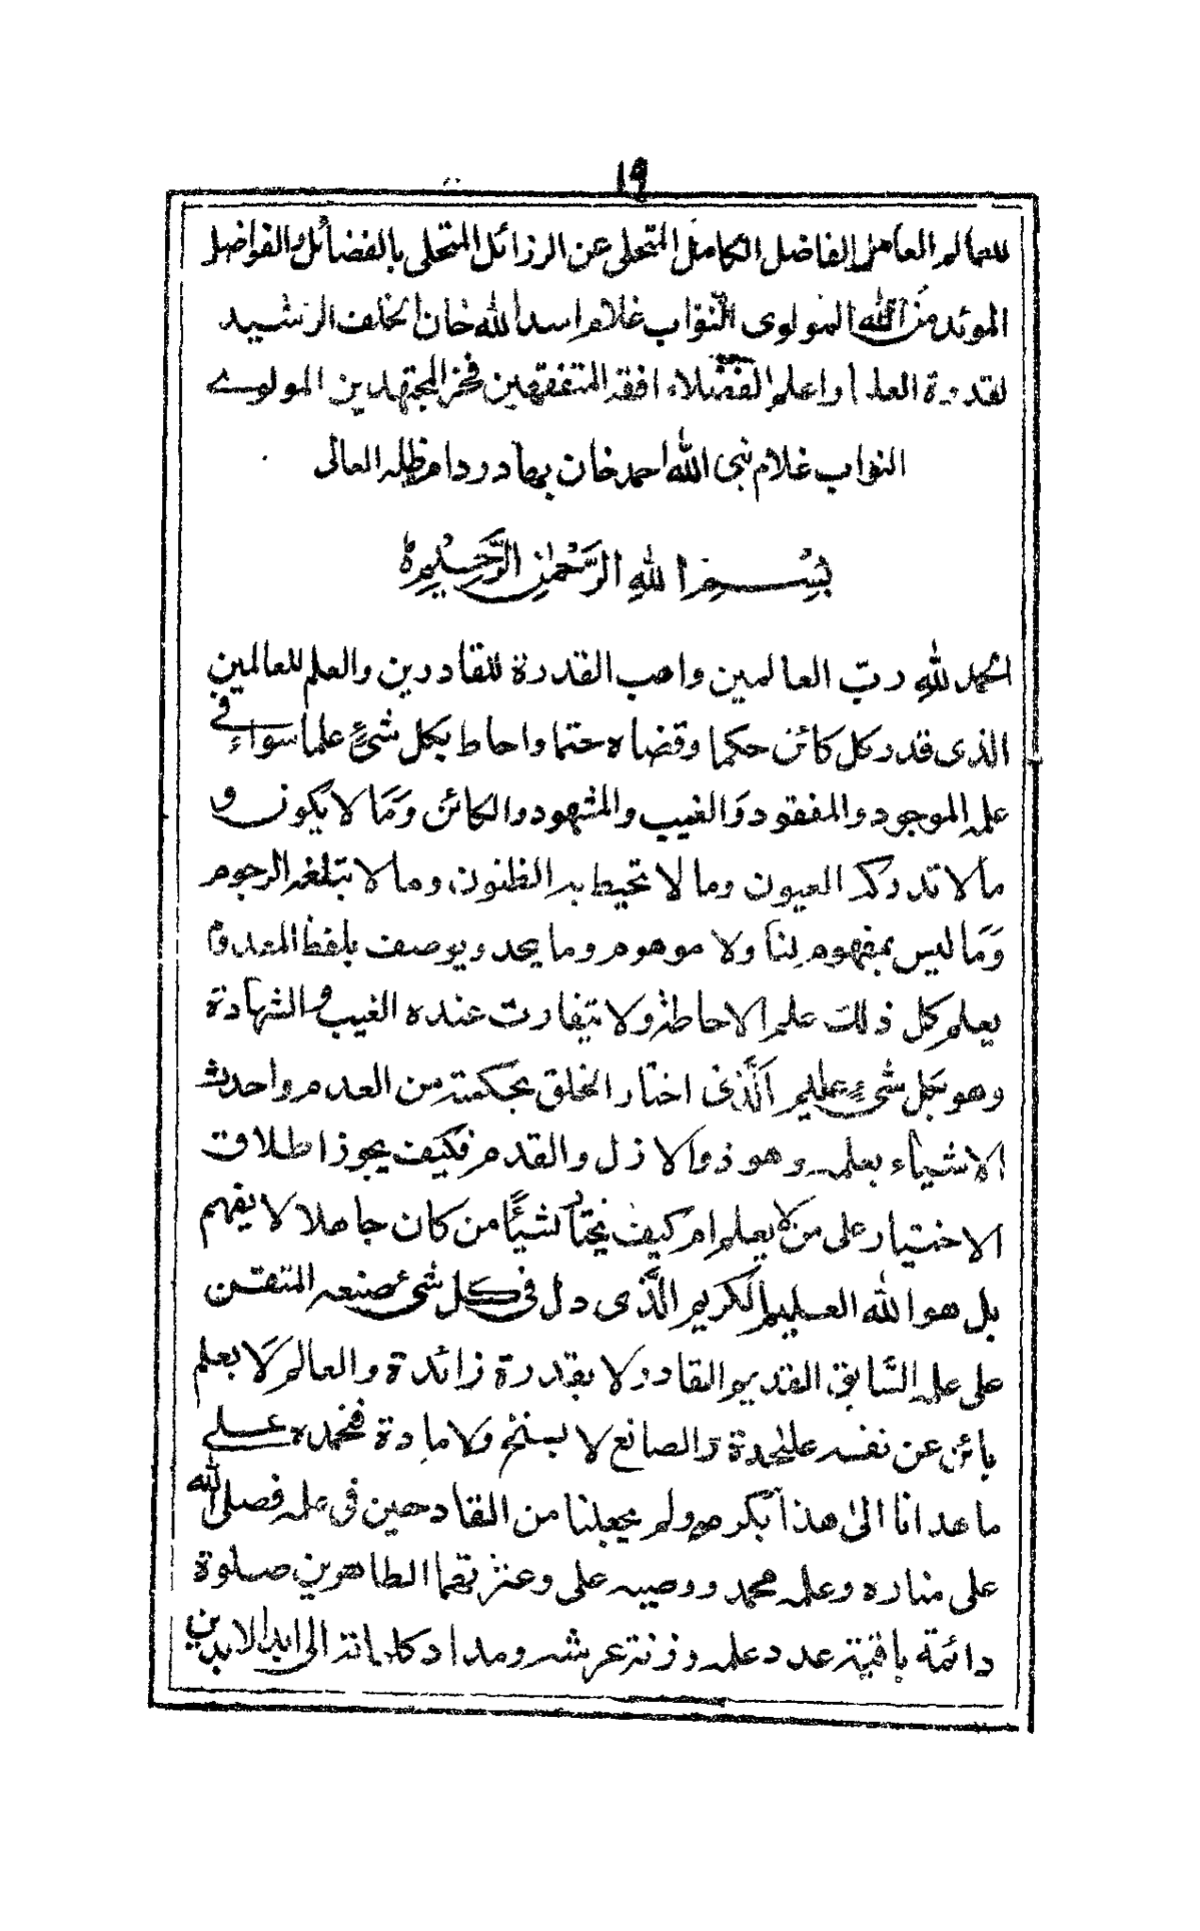 ١٩
للعالم العامل الفاضل الكامل المتخلى عن الرزائل المتحلى بالفضائل والفواضل
الموئد من الله المولوى النواب غلام اسد الله خان الخلف الرشيد
لقدوة العلما واعلم الفضلاء افقه المتفقهين فخر المجتهدين المولوے
النواب غلام نبى الله احمد خان بهادر دام ظله العالى
بِسْــمِ اللهِ الرَّحْمٰنِ الرَّحِــيْمِ
الحمد للهِ ربّ العالمين واهب القدرة للقادرين والعلم للعالمين
الذى قدر كل كائن حكما وقضاه حتما واحاط بكل شئٍ علما سواء فے
علمه الموجود والمفقود وَالغيب والمشهود والكائن وَمَا لا يكون و
مالا تدركه العيون وما لا تحيط به الظنون وما لا تبلغه الرجوم
وَمَا ليس بمفهوم لنا ولا موهوم وما يحد ويوصف بلفظ المعدوم
يعلم كل ذلك علم الاحاطة ولا يتفاوت عنده الغيب والشهادة
وهو بكل شئٍ عليم اَلَّذى اختار الخلق بحكمته من العدم واحدث
الاشياء بعلمه وهو ذو الازل والقدم فكيف يجوز اطلاق
الاختيار على من لا يعلم ام كيف يختار شيئًا من كان جاهلا لا يفهم
بل هو الله العــليم الكريم الَّذى دل فى كل شئ صنعه المتقن
على علمه السَّابق القديم والقادر لا بقدرة زائدة والعالم لَا بعلم
بائن عن نفسه علىٰحدة والصانع لا بسنخ ولا مادة فنحمده عــلے
ما هدانا الىٰ هذا بكرمه ولم يجعلنا من القادحين فى علمه فصلى الله
على مناره وعلمه محمد ووصيه على وعترتهما الطاهرين صلوة
دائمة باقية عدد علمه وزنة عرشه ومداد كلماته الى ابد الابدين